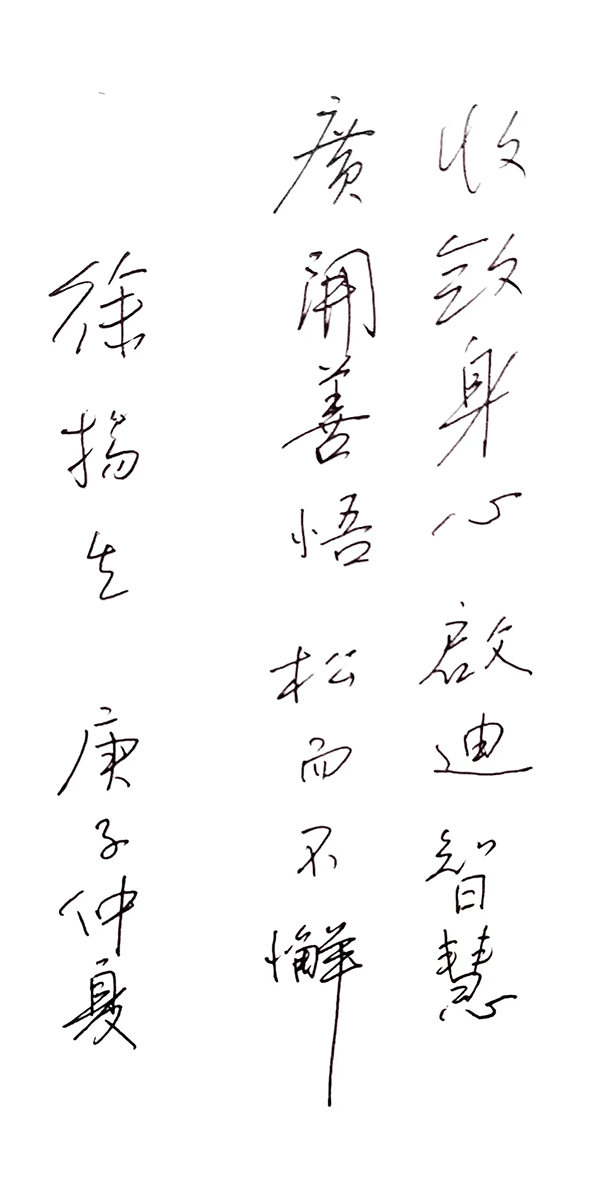 收敛身心 啟迪智慧
廣開善悟 松而不懈
徐揚生 庚子仲夏